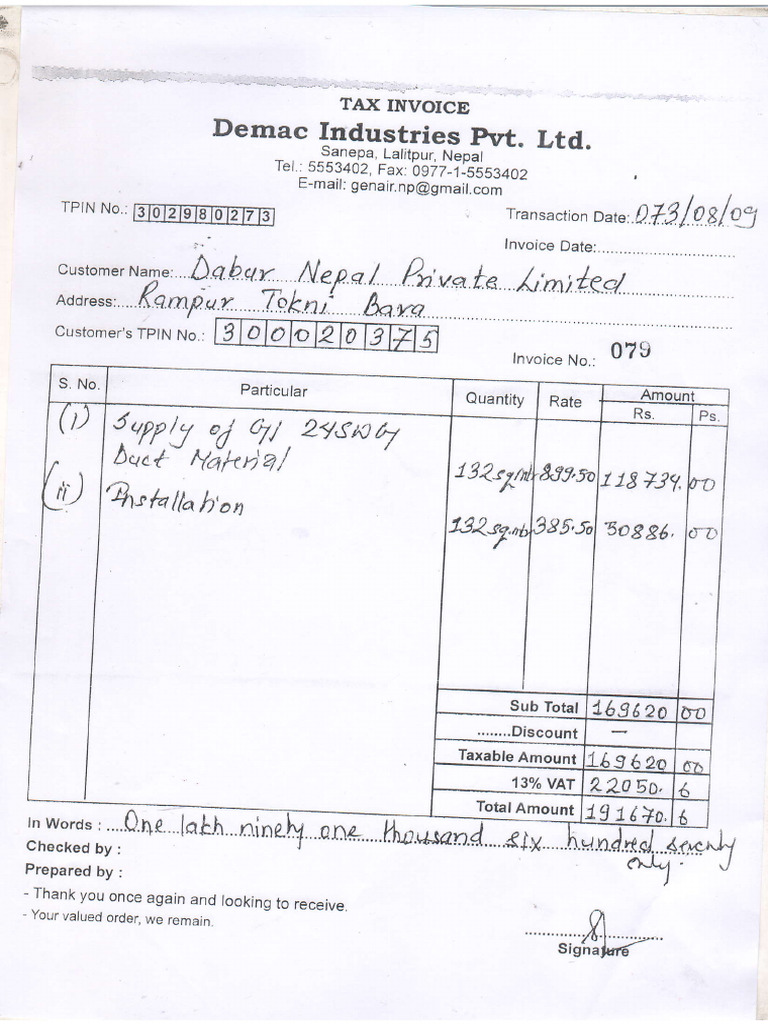 TAX INVOICE
Demac Industries Pvt. Ltd.
Sanepa, Lalitpur, Nepal
Tel.: 5553402, Fax: 0977-1-5553402
E-mail: genair.np@gmail.com
TPIN No.: 302980273
Transaction Date: 073/08/09
Invoice Date:
Customer Name: Dabur Nepal Private Limited
Address: Rampur Tokni Bara
Customer's TPIN No.: 300020375
Invoice No.: 079
S. No. Particular Quantity Rate Amount
Rs. Ps.
(i) Supply of GI 24SWG
Duct Material 132 sq.mtr 899.50 118734. 00
(ii) Installation
132 sq.mtr 385.50 50886. 00
Sub Total 169620 00
........Discount —
Taxable Amount 169620 00
13% VAT 22050. 6
Total Amount 191670. 6
In Words : One lakh ninety one thousand six hundred seventy
only.
Checked by :
Prepared by :
- Thank you once again and looking to receive.
- Your valued order, we remain.
Signature